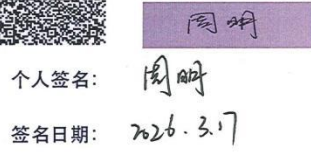 周明
个人签名: 周明
签名日期: 2026.3.17